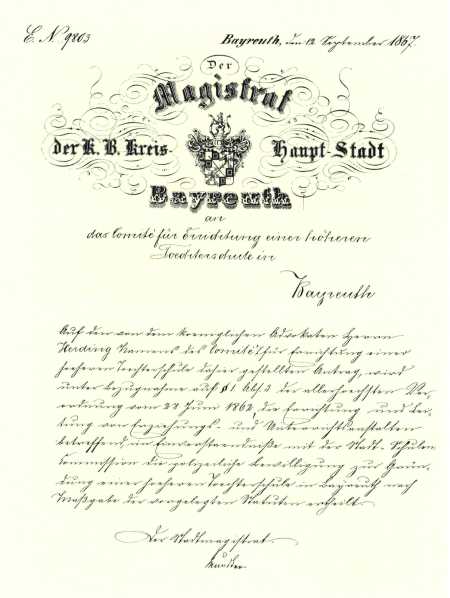 E. N. 9803
Bayreuth, den 12. September 1867.
Der
Magistrat
der K. B. Kreis- Haupt-Stadt
Bayreuth
an
das Comité für Errichtung einer höheren
Toechterschule in
Bayreuth
Auf den von dem koeniglichen Advokaten Herrn
Harding Namens des Comité's für Errichtung einer
hoeheren Toechterschule dahier gestellten Antrag, wird
unter Bezugnahme auf § 1 Abs. 2 der allerhoechsten Ver-
ordnung vom 28 Juni 1862 die Errichtung und Lei-
tung von Erziehungs- und Unterrichtsanstalten
betreffend, im Einverstaendniße mit der Stadt-Schulen
Commission die polizeiliche Bewilligung zur Gruen-
dung einer hoeheren Toechterschule in Bayreuth nach
Maßgabe der vorgelegten Statuten ertheilt.
Der Stadtmagistrat.